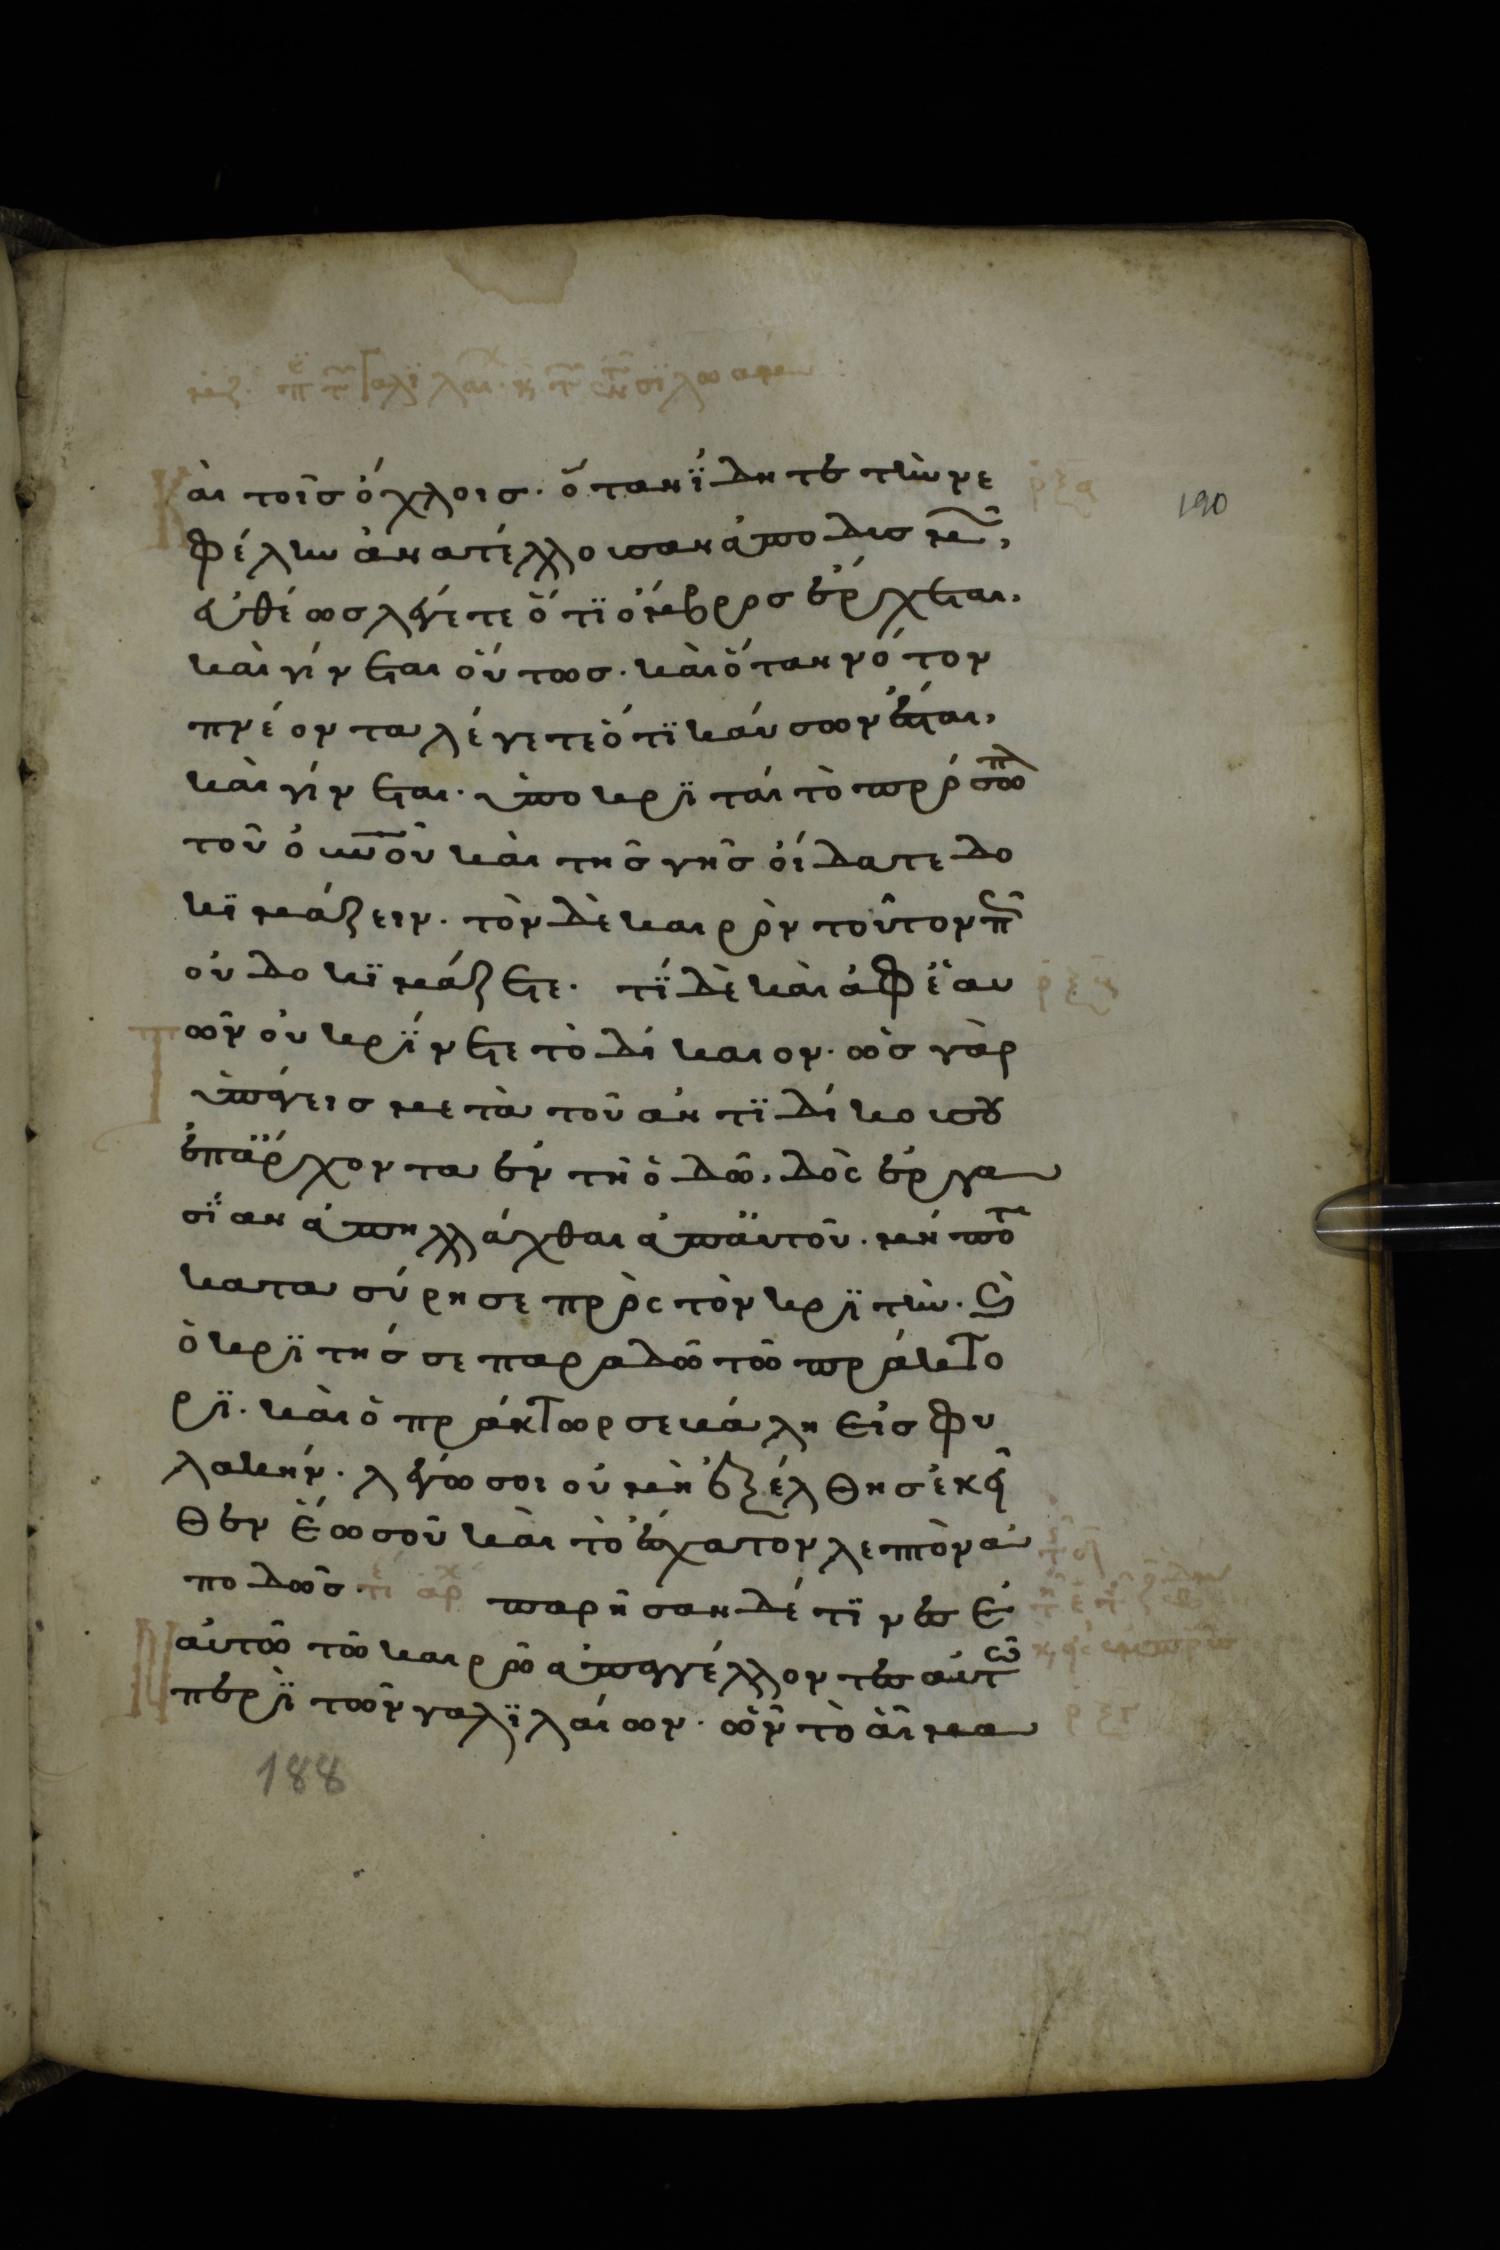 Και τοῖς ὄχλοις· ὅταν ἴδητε τὴν νε
φέλην ἀνατέλλουσαν ἀπο δυσμῶ,
ἐυθέως λέγετε ὅτϊ ὄμβρος ἔρχεται,
καὶ γίνεται ὅυτως· καὶ ὅταν νότον
πνέοντα λέγετε ὅτϊ κάυσων ἔσται,
καὶ γίνεται· ὑποκρϊταί τὸ πρόσωπ
τοῦ οὐνοῦ καὶ τῆς γῆς ὀίδατε δο
κϊμάζειν· τὸν δὲ καιρὸν τοῦτον π
οὐ δοκϊμάζετε· τΐ δὲ καὶ ἀφ ἑαυ
Τῶν οὐ κρΐνετε τὸ δίκαιον· ὡς γὰρ
ὑπάγεις μετὰ τοῦ ἀντϊδίκου σου
ἐπ ἄρχοντα ἐν τῇ ὁδῶ, δὸς ἐργα
σΐαν ἀπηλλάχθαι ἀπ ἀυτοῦ· μήποτε
κατασύρη σε πρὸς τὸν κρϊτὴν· ϗ
ὁ κρϊτής σε παραδῶ τῶ πράκτο
ρϊ· καὶ ὁ πράκτωρ σε βάλη εἰς φυ
λακήν· λέγω σοι οὐ μὴ ἐξέλθης ἐκεῖ
θεν ἕως οὗ καὶ τὸ ἔσχατον λεπτὸν ἀ
ποδῶς· τέ αρχ παρῆσαν δέ τϊνες ἐν
Παὐτῶ τῶ καιρῶ ἀπαγγέλλοντες αὐτῶ
περϊ τῶν γαλϊλαίων· ὧν τὸ αἷμα
190
188